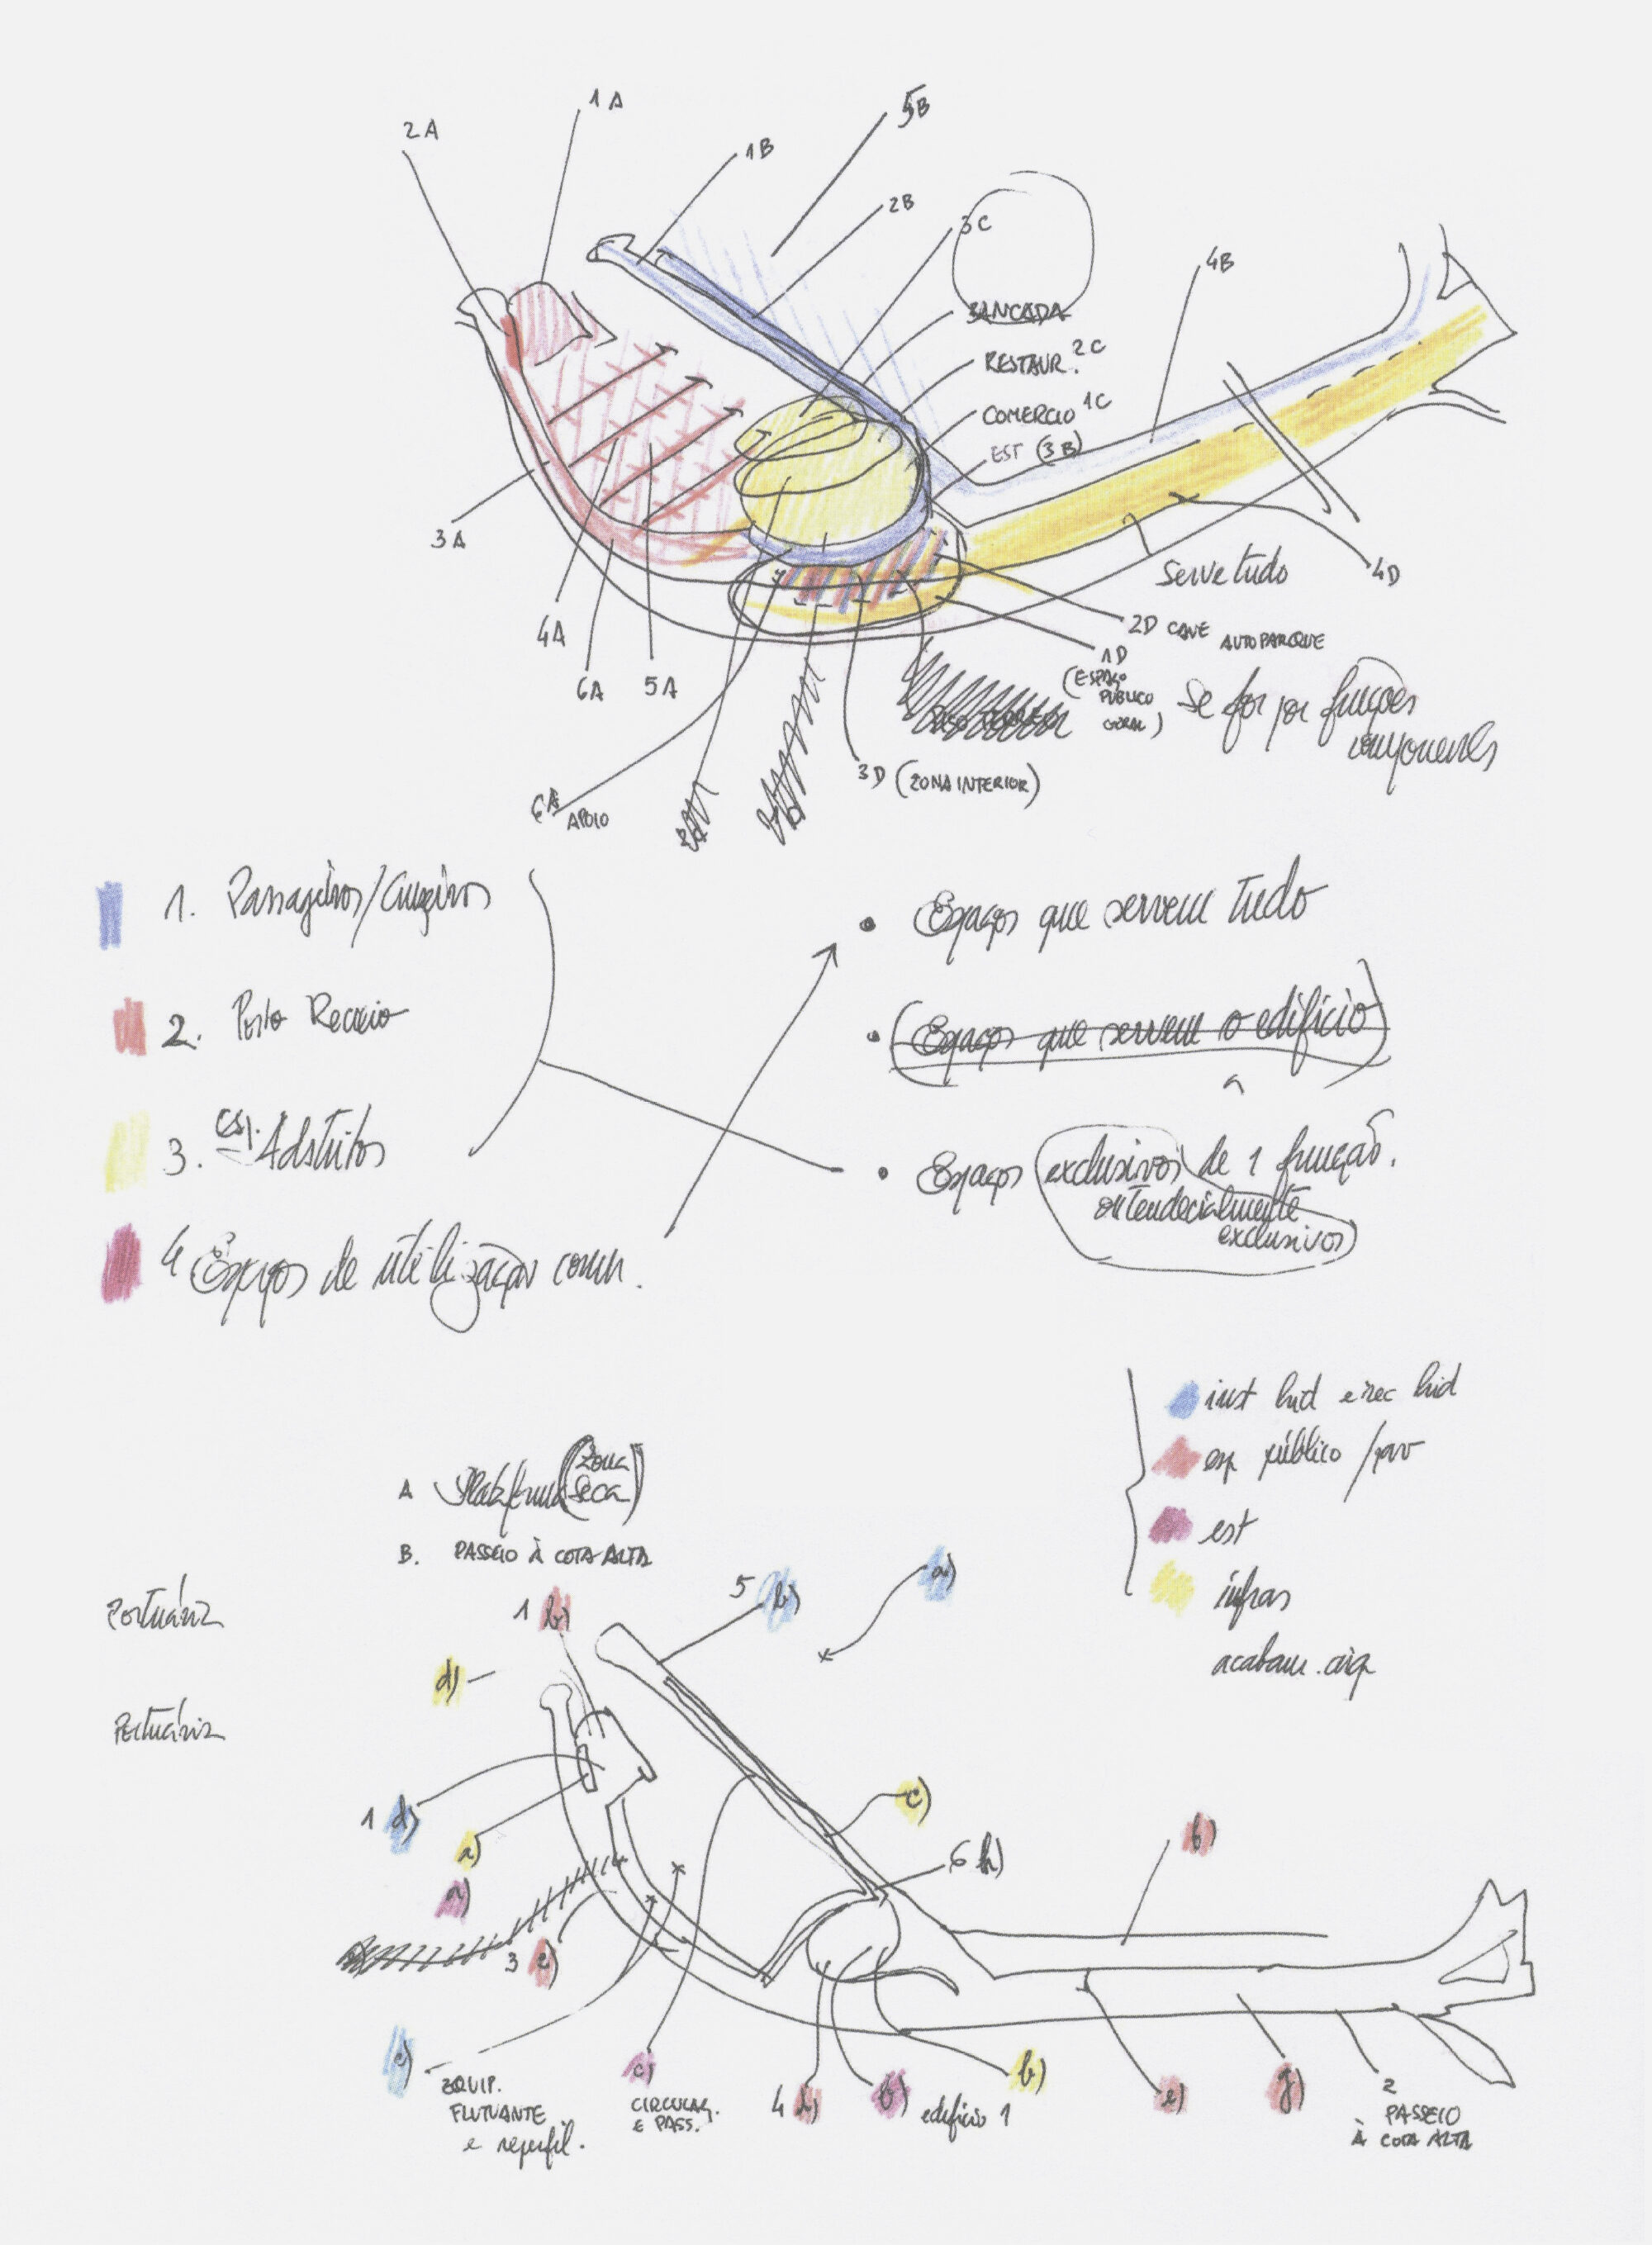 1A
2A
5B
1B
2B
3C
4B
BANCADA
RESTAUR. 2C
COMERCIO 1C
EST (3B)
3A
Serve tudo
4D
4A
2D CAVE AUTOPARQUE
6A
5A
1D
(ESPAÇO
PÚBLICO
GERAL)
Se for por funções
componentes
3D (ZONA INTERIOR)
6A APOIO
1. Passageiros/Cruzeiros
2. Porto Recreio
3. esp. Adstritos
4 Espaços de utilização comum.
• Espaços que servem tudo
• (Espaços que servem o edifício)
• Espaços exclusivos de 1 função.
ou tendecialmente
exclusivos
inst hid e rec hid
esp público / pav
est
infras
acabam. arq
A Plataforma (zona
seca)
B. PASSEIO À COTA ALTA
Portuária
Portuária
1 b)
5 b)
a)
d)
1 d)
a)
a)
c)
6 h)
b)
3 e)
c)
EQUIP.
FLUTUANTE
e reperfil.
c)
CIRCULAÇ.
E PASS.
4 b)
edifício 1
b)
e)
g)
2
PASSEIO
À COTA ALTA